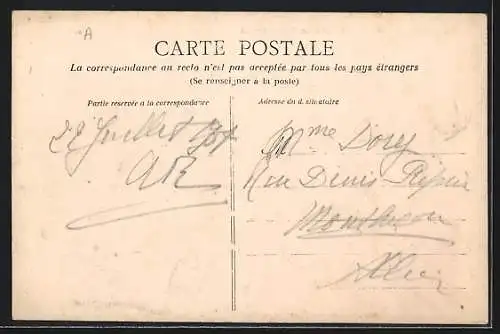 A
CARTE POSTALE
La correspondance au recto n'est pas acceptée par tous les pays étrangers
(Se renseigner à la poste)
Partie reservée a la correspondance
Adresse du destinataire
22 Juillet
AR
Mme Dorey
Rue Denis Papin
Montluçon
Allier